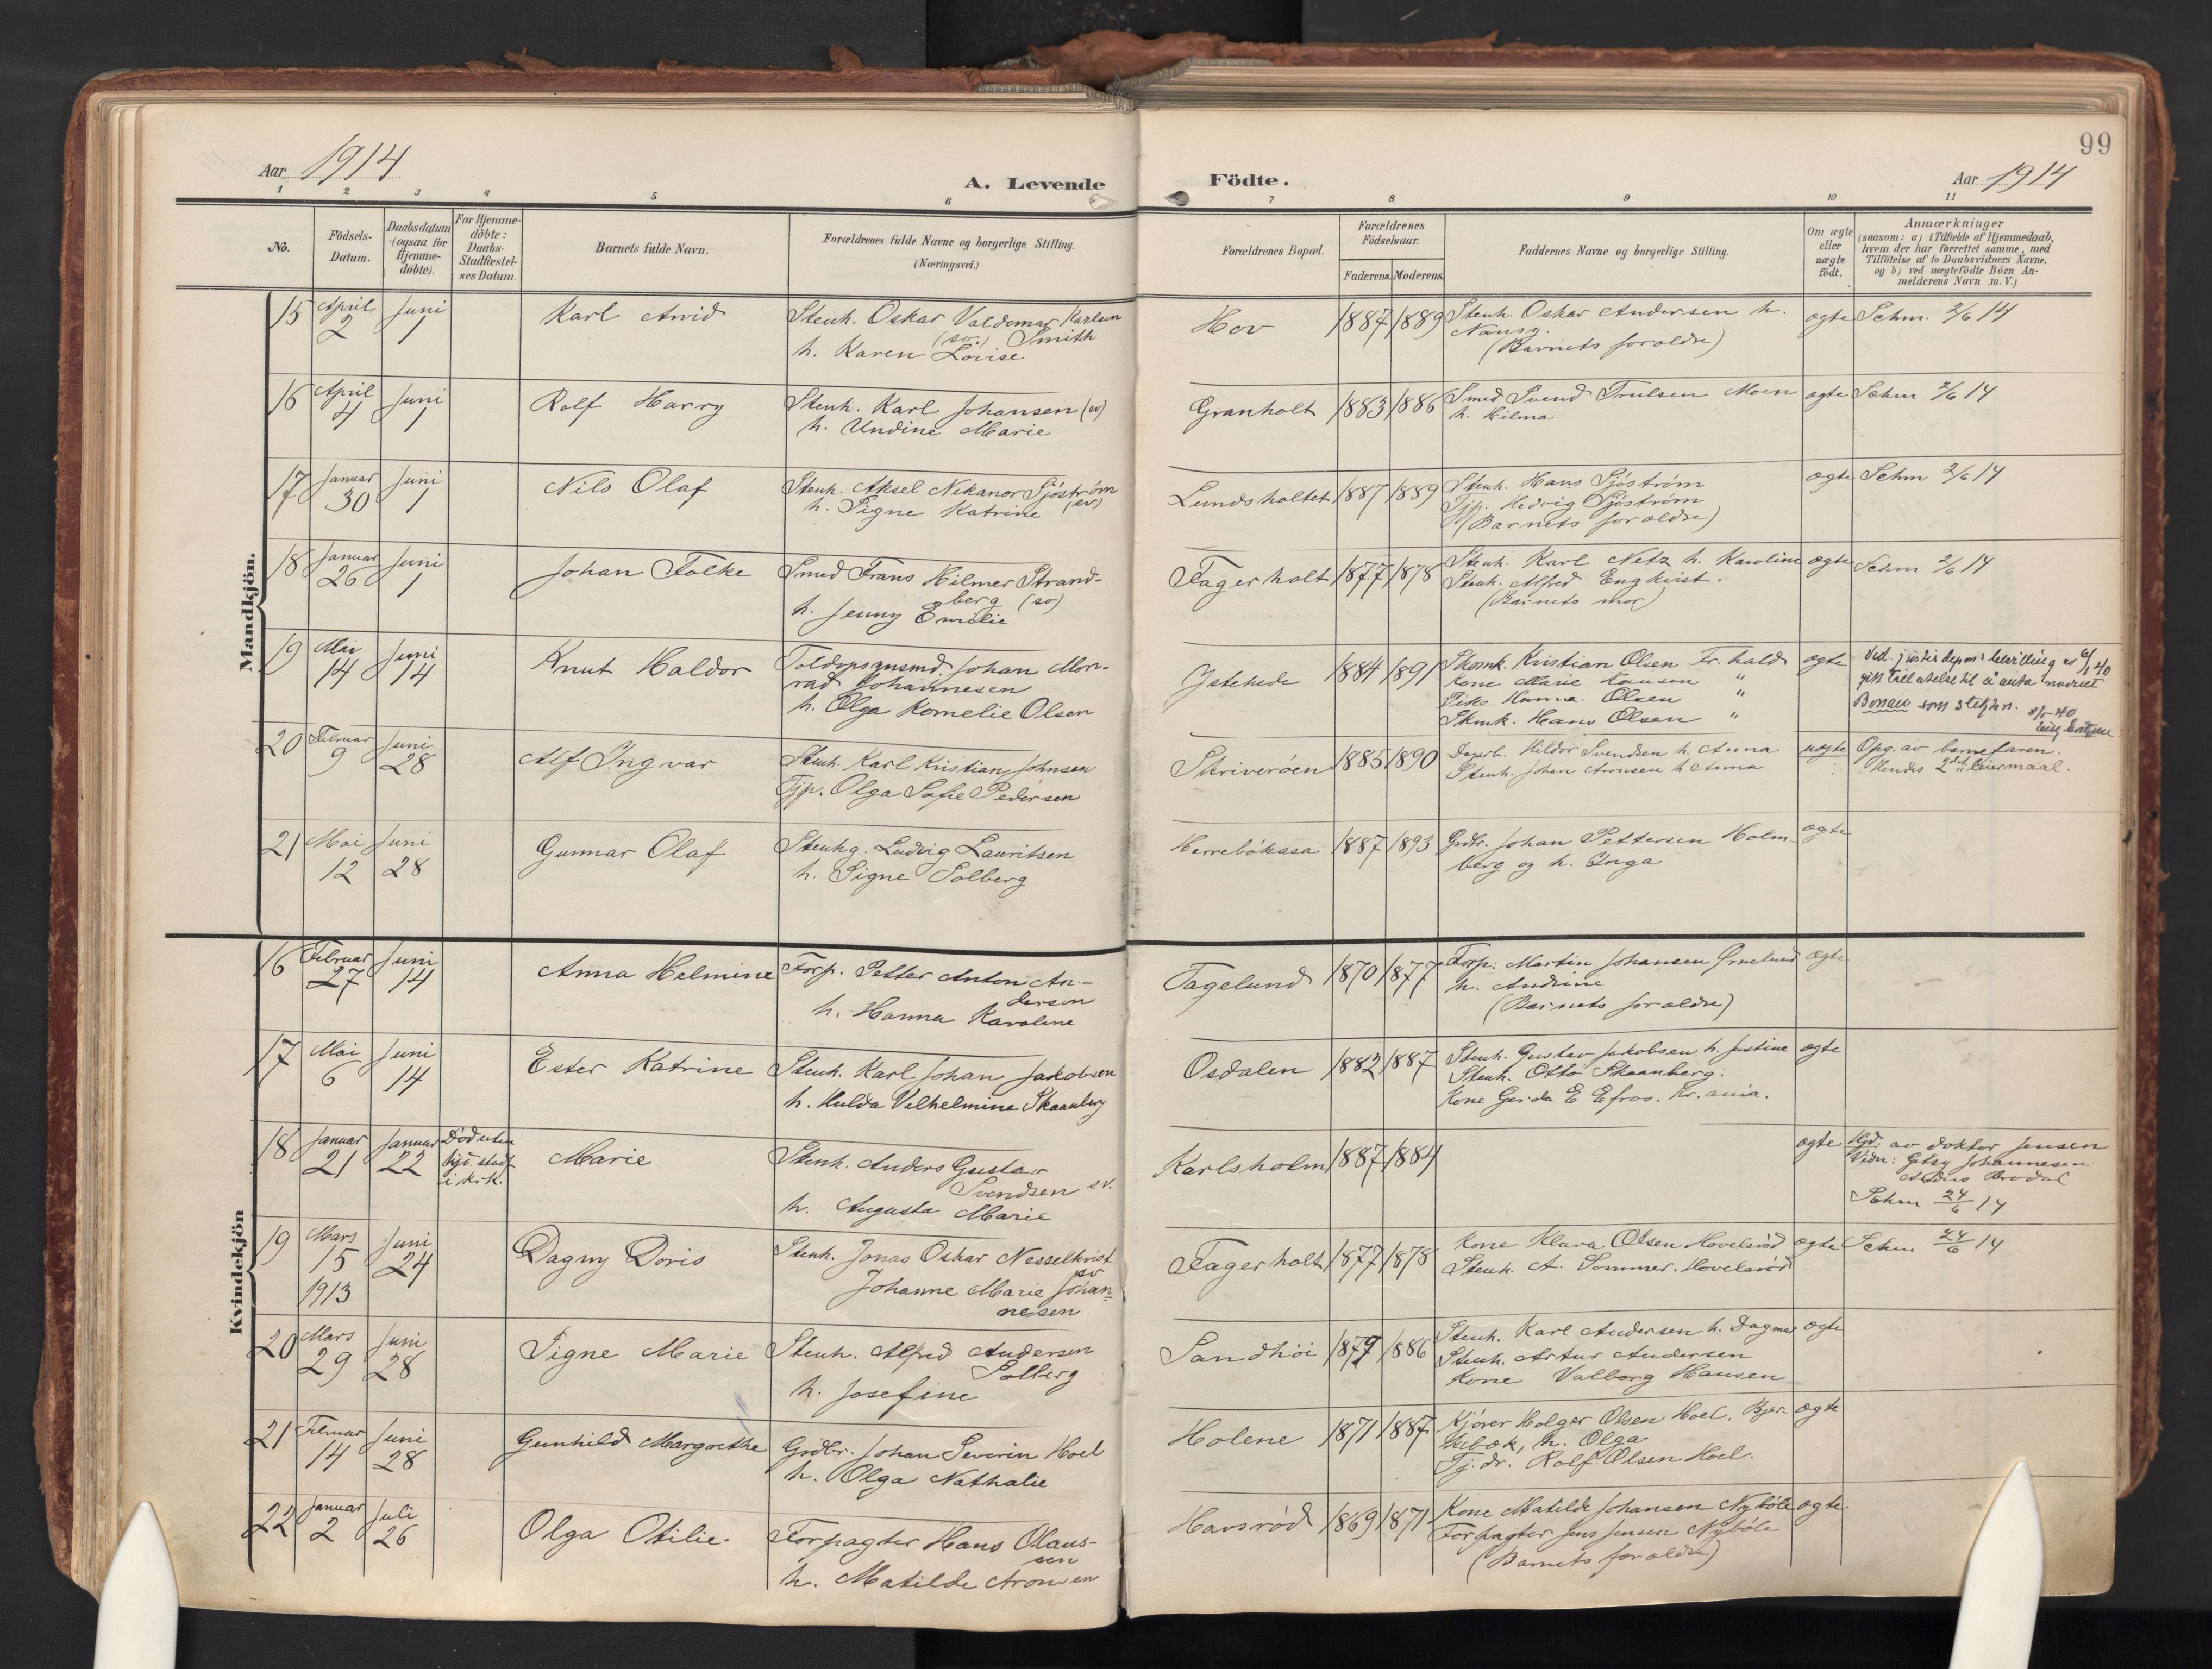 99
Aar 1914
A. Levende Födte.
Aar 1914
1 2 3 4 5 6 7 8 9 10 11
No.
Födsels-
Datum.
Daabsdatum
(ogsaa for
Hjemme-
döbte).
For Hjemme-
döbte:
Daabs-
Stadfæstel-
ses Datum.
Barnets fulde Navn.
Forældrenes fulde Navne og borgerlige Stilling.
(Næringsvei.)
Forældrenes Bopæl.
Forældrenes
Födselsaar.
Faderens. Moderens.
Faddernes Navne og borgerlige Stilling.
Om ægte
eller
uægte
födt.
Anmærkninger
(saasom: a) i Tilfælde af Hjemmedaab,
hvem der har forrettet samme, med
Tilföielse af to Daabsvidners Navne,
og b) ved uægtefödte Börn An-
melderens Navn m. V.)
Mandkjön.
15 April 2 Juni 1 Karl Arvid
Stenh. Oskar Valdemar Karlsen
(sv.) Smith
h. Karen Lovise
Hov 1887 1889
Stenh. Oskar Andersen h.
Nansy.
(Barnets foroldre)
ægte Schm. 2/6 14
16 April 4 Juni 1 Rolf Harry
Stenh. Karl Johansen (sv)
h. Undine Marie
Granholt 1883 1886
Smed Svend Trulsen Moen
h. Hilma
ægte Schm 2/6 14
17 Januar 30 Juni 1 Nils Olaf
Stenh. Aksel Nikanor Sjöström
h. Signe Katrine (sv)
Lundsholtet 1887 1889
Stenh. Hans Sjöström
Tjp. Hedvig Sjöström
(Barnets foroldre)
ægte Schm 2/6 14
18 Januar 26 Juni 1 Johan Folke
Smed Frans Hilmer Strand-
berg (sv)
h. Jenny Emilie
Fagerholt 1877 1878
Stenh. Karl Netz h. Karoline
Stenh. Alfred Engkvist.
(Barnets mor)
ægte Schm 2/6 14
19 Mai 14 Juni 14 Knut Haldor
Toldopsynsmd. Johan Mon-
rad Johannesen
h. Olga Kornelie Olsen
Istehede 1884 1891
Skomk. Kristian Olsen Fr.hald
Kone Marie Hansen "
Pike Hanna Olsen "
Skmk. Hans Olsen "
ægte
Ved justisdepts bevilling av
gitt tillatelse til å anta navnet
som slektsn.
20 Februar 9 Juni 28 Alf Ingvar
Stenh. Karl Kristian Johnsen
Tjp. Olga Sofie Pedersen
Skriveröen 1885 1890
Dagarb. Hildor Svendsen h. Anna
Stenh. Johan Aronsen h Anna
uægte Opg. av barnefaren.
Hendes 2det leiermaal.
21 Mai 12 Juni 28 Gunnar Olaf
Stenhg. Ludvig Lauritsen
h. Signe Solberg
Herrebökasa 1887 1893
Grdbr. Johan Pettersen Holm-
berg og h. Inga
ægte
Kvindekjön
16 Februar 27 Juni 14 Anna Helmine
Forp. Petter Anton An-
dersen
h. Hanna Karoline
Fagelund 1870 1877
Forp. Martin Johansen
h. Andrine
(Barnets foroldre)
ægte
17 Mai 6 Juni 14 Ester Katrine
Stenh. Karl Johan Jakobsen
h. Hulda Vilhelmine Skaanberg
Osdalen 1882 1887
Stenh. Gustav Jakobsen h. Justine
Stenh. Otto Skaanberg.
Kone Gerda E Efros. Kr.ania.
ægte
18 Januar 21 Januar 22
Död uten
stadf
i kirk.
Marie
Stenh. Anders Gustav
Svendsen sv.
h. Augusta Marie
Karlsholm 1887 1884
ægte
Hjd. av doktor Jensen
Vidn: Getsy Johannesen
Brodal
Schm 24/6 14
19 Mars 15 1913 Juni 24 Dagny Doris
Stenh. Jonas Oskar Nesselkvist
sv
Johanne Marie Johan-
nesen
Fagerholt 1877 1878
Kone Klara Olsen Hovelsröd
Stenh. A. Sommer. Hovelsröd
ægte Schm. 24/6 14
20 Mars 29 Juni 28 Signe Marie
Stenh. Alfred Andersen
Solberg
h. Josefine
Sandhöi 1879 1886
Stenh. Karl Andersen h. Dagmar
Stenh. Artur Andersen
Kone Valborg Hansen
ægte
21 Februar 14 Juni 28 Gunhild Margrethe
Grdbr. Johan Severin Hoel
h. Olga Nathalie
Holene 1871 1887
Kjörer Holger Olsen Hoel, Bjer-
kebæk, h. Olga
Tj.dr. Rolf Olsen Hoel.
ægte
22 Januar 2 Juli 26 Olga Otilie.
Forpagter Hans Olaus-
sen
h. Matilde Aronsen
Havsröd 1869 1871
Kone Matilde Johansen Nyböle
Forpagter Jens Jensen Nyböle
(Barnets foroldre)
ægte.